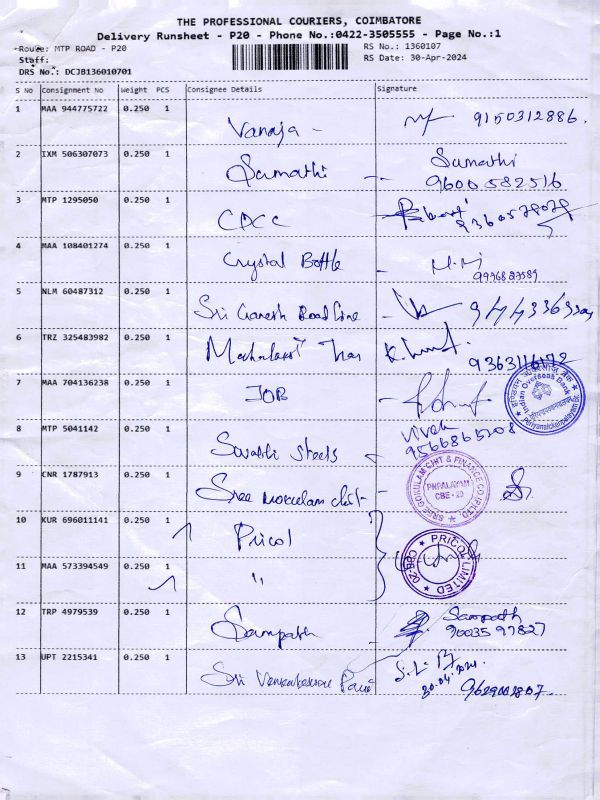 THE PROFESSIONAL COURIERS, COIMBATORE
Delivery Runsheet - P20 - Phone No.:0422-3505555 - Page No.:1
Route: MTP ROAD - P20 RS No.: 1360107
Staff: RS Date: 30-Apr-2024
DRS No.: DCJB136010701
S No Consignment No Weight PCS Consignee Details Signature
1 MAA 944775722 0.250 1 Vanaja - 9150312886.
2 IXM 506307073 0.250 1 Sumathi -- Sumathi
9600582516
3 MTP 1295050 0.250 1
4 MAA 108401274 0.250 1 Crystal Bottle -
5 NLM 60487312 0.250 1 Sri Ganesh
6 TRZ 325483982 0.250 1
7 MAA 704136238 0.250 1 IOB -
Indian Overseas Bank
8 MTP 5041142 0.250 1 Steels Vivek
9566865208
9 CNR 1787913 0.250 1 Sree
SREE GOKULAM CHIT & FINANCE CO.(P)LTD.
PNPALAYAM
CBE - 20
10 KUR 696011141 0.250 1 Pricol
11 MAA 573394549 0.250 1 "
PRICOL LIMITED
12 TRP 4979539 0.250 1 Sampath Sampath
9003597827
13 UPT 2215341 0.250 1 Sri
30.04.2024
9629002807.